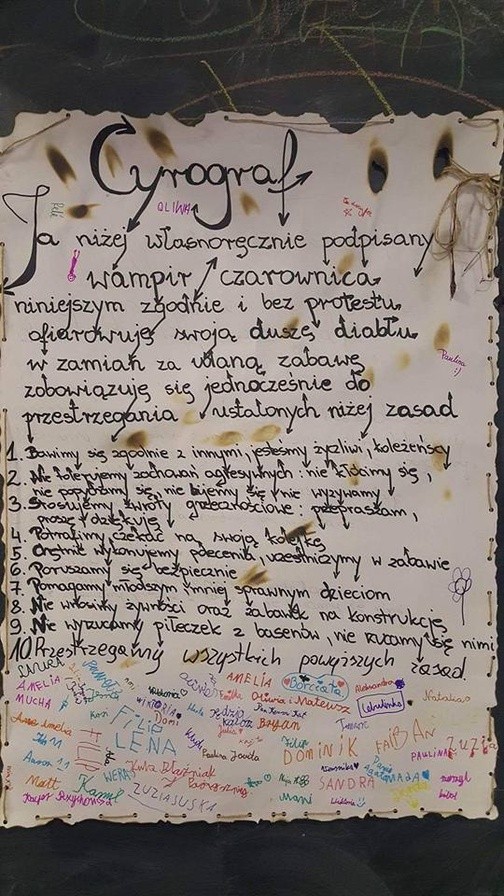 Cyrograf
OLIWA
Ja niżej własnoręcznie podpisany
wampir czarownica
niniejszym zgodnie i bez protestu
ofiarowuję swoją duszę diabłu
w zamian za udaną zabawę
Paulina :)
zobowiązuję się jednocześnie do
przestrzegania ustalonych niżej zasad
1. Bawimy się zgodnie z innymi, jesteśmy życzliwi, koleżeńscy
2. Nie tolerujemy zachowań agresywnych: nie kłócimy się,
nie popychamy się, nie bijemy się, nie wyzywamy
3. Stosujemy zwroty grzecznościowe: przepraszam,
proszę, dziękuję
4. Potrafimy czekać na swoją kolejkę
5. Chętnie wykonujemy polecenia, uczestniczymy w zabawie
6. Poruszamy się bezpiecznie
7. Pomagamy młodszym i mniej sprawnym dzieciom
8. Nie wnosimy żywności oraz zabawek na konstrukcję
9. Nie wyrzucamy piłeczek z basenów, nie rzucamy się nimi
10 Przestrzegamy wszystkich powyższych zasad
LAURA AMELIA
AMELIA Wiktoria Oliwia i Mateusz Aleksandra Natalia
MUCHA WIKTORIA Bryan
FILIP Julia
LENA Filip DOMINIK FABIAN ZUZIA
FILIP PAULINA
WERA SANDRA
Matt Kamil Mani
ZUZIA